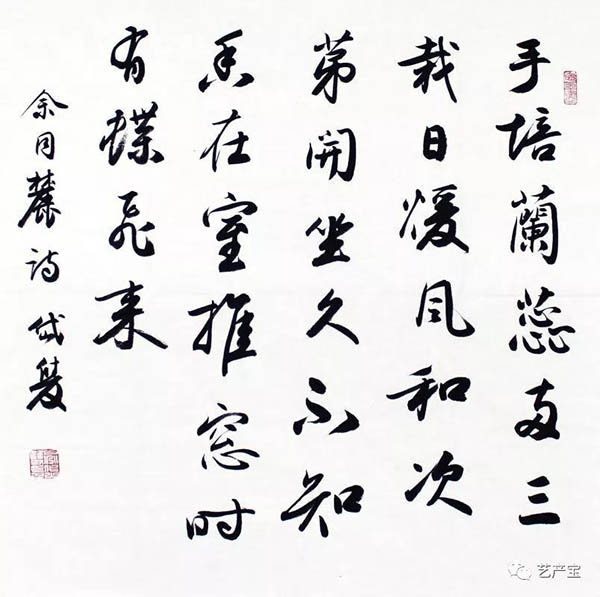 手培蘭蕊两三
栽日煖风和次
第開坐久不知
香在室推窓时
有蝶飛来
余同麓詩 岱
艺产宝